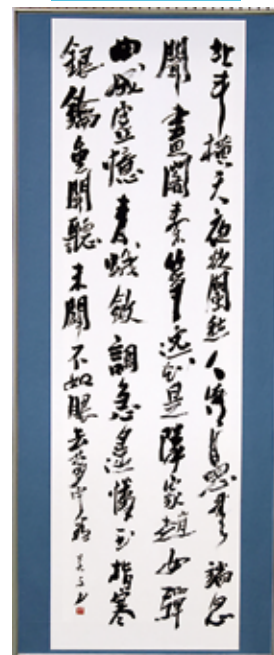 北斗横天夜欲闌愁人倚月思無端忽
聞畫閣秦箏逸知是隣家趙女彈
曲成虛憶青蛾斂調急遙憐玉指寒
銀鑰重関聽未闢不如眠去夢中看